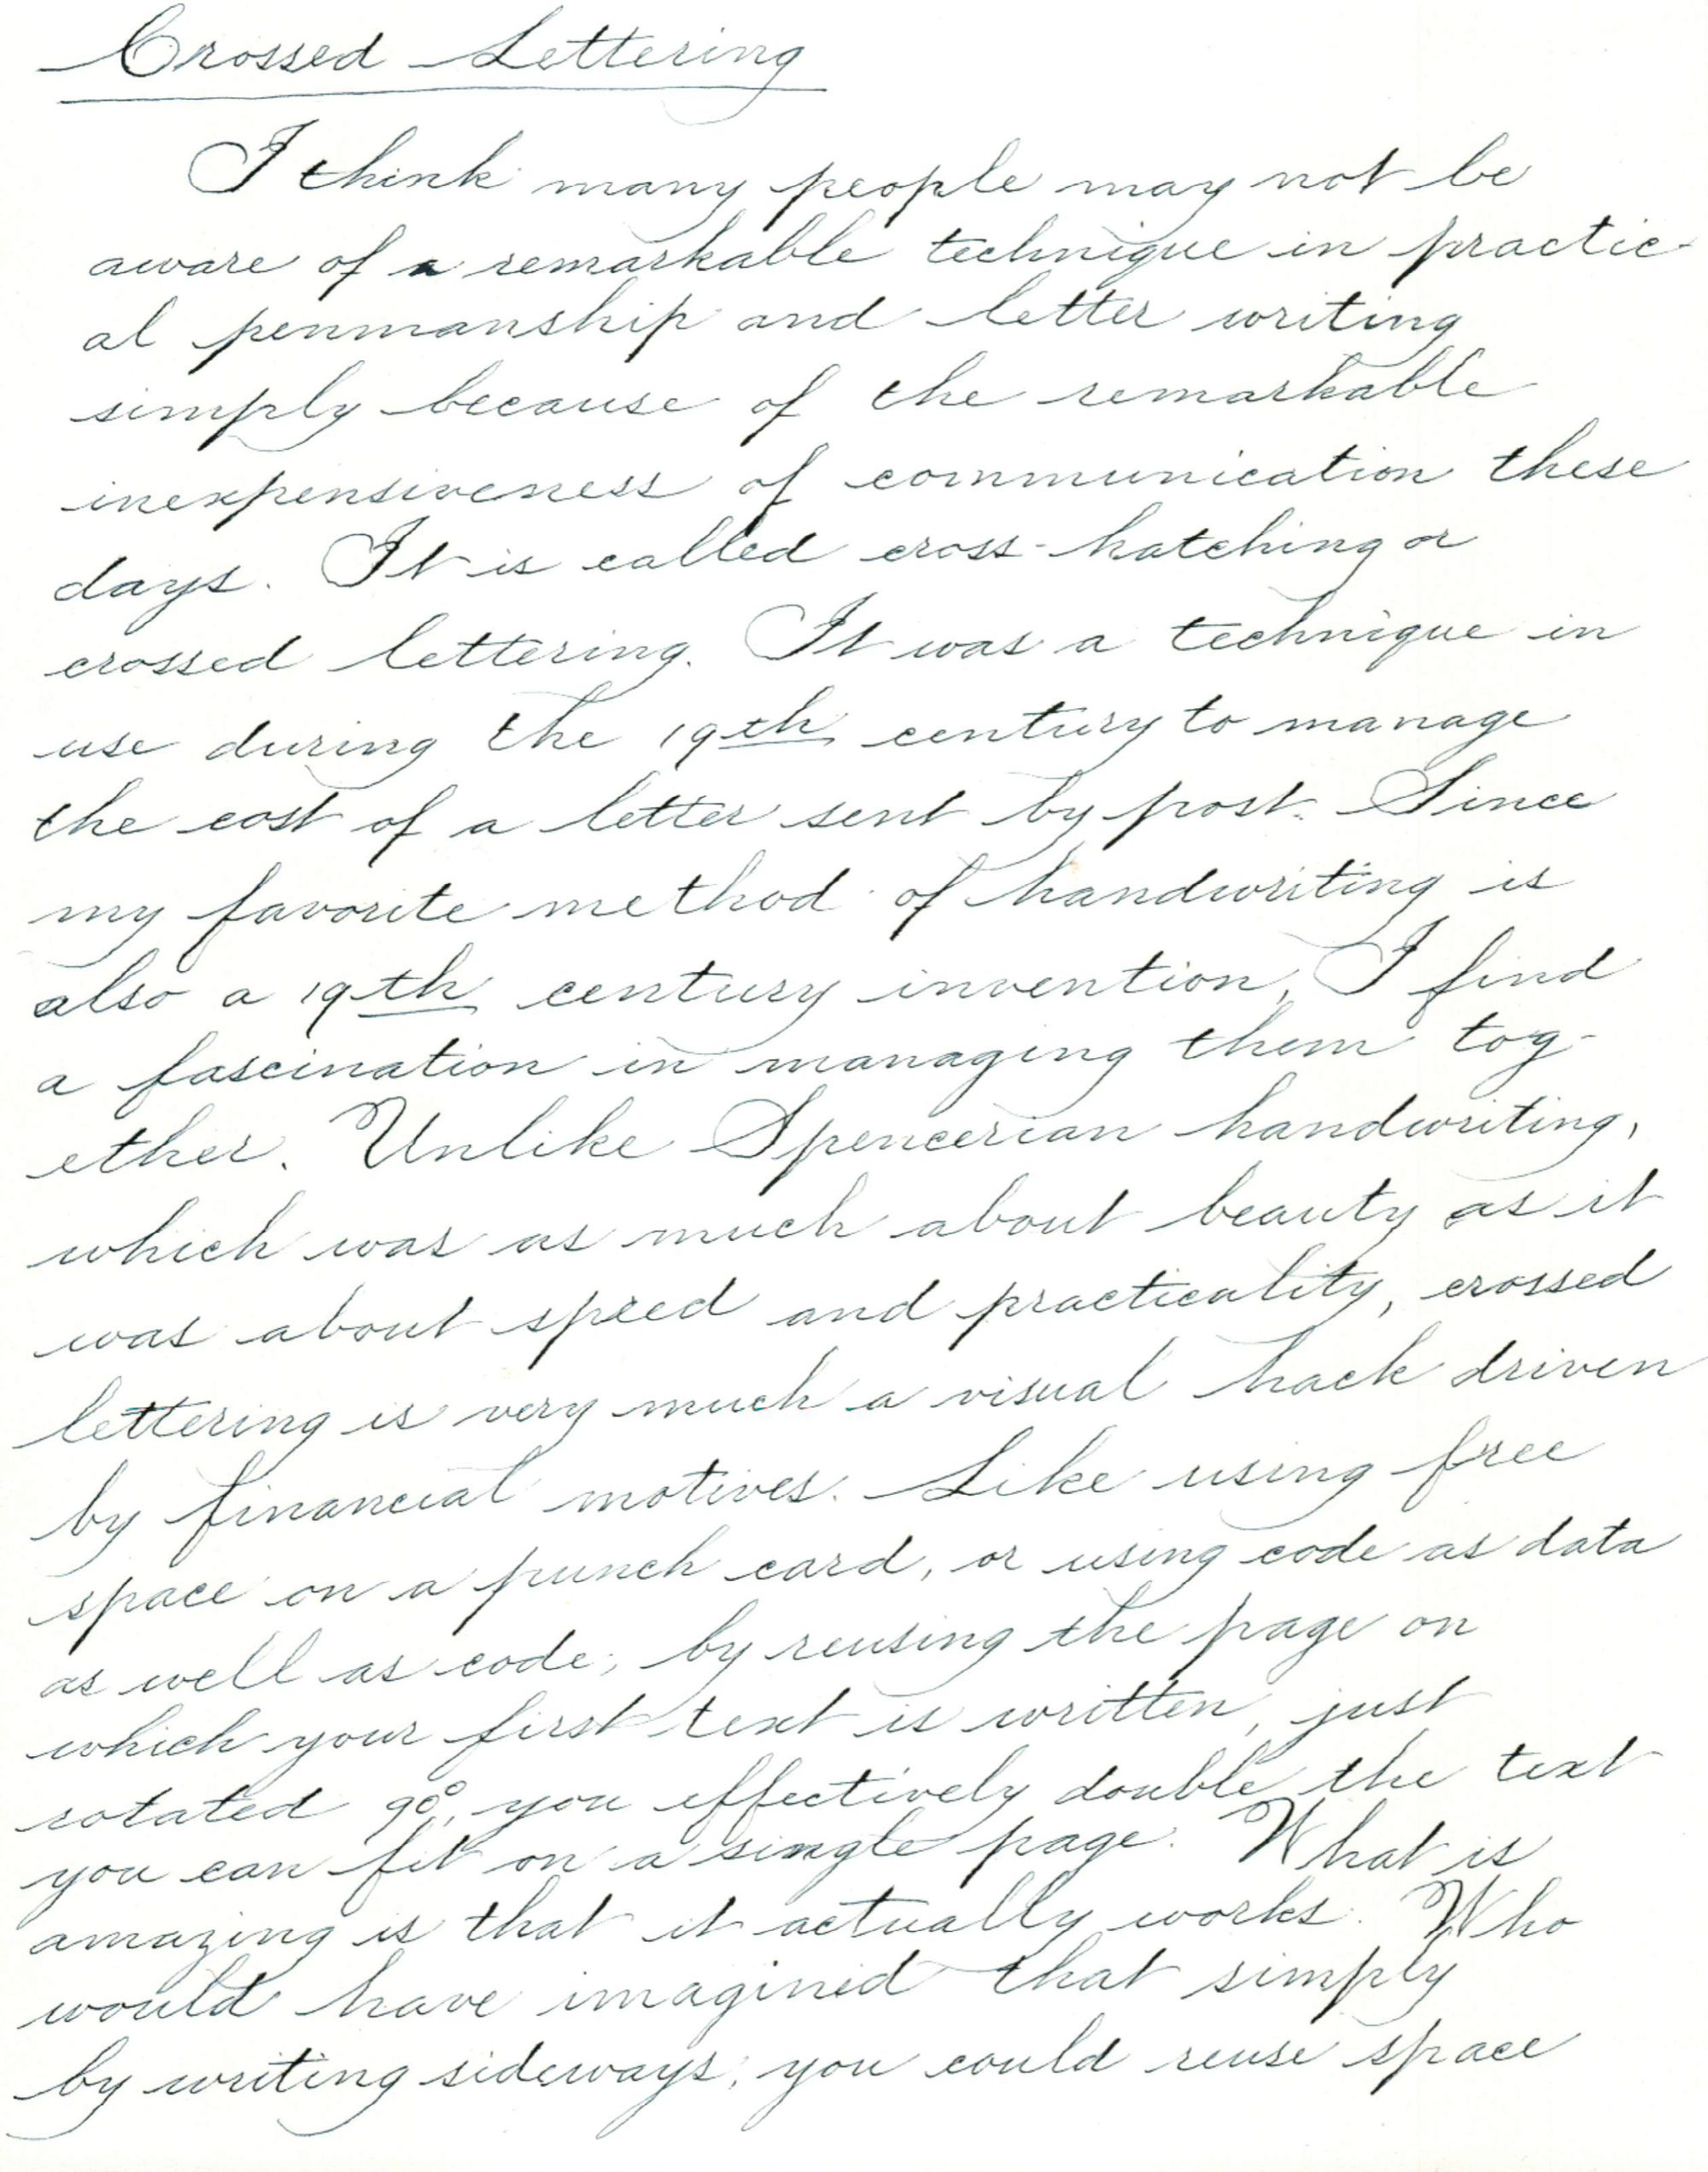 Crossed Lettering
I think many people may not be
aware of a remarkable technique in practic-
al penmanship and letter writing
simply because of the remarkable
inexpensiveness of communication these
days. It is called cross-hatching or
crossed lettering. It was a technique in
use during the 19th century to manage
the cost of a letter sent by post. Since
my favorite method of handwriting is
also a 19th century invention, I find
a fascination in managing them tog-
ether. Unlike Spencerian handwriting,
which was as much about beauty as it
was about speed and practicality, crossed
lettering is very much a visual hack driven
by financial motives. Like using free
space on a punch card, or using code as data
as well as code, by reusing the page on
which your first text is written, just
rotated 90°, you effectively double the text
you can fit on a single page. What is
amazing is that it actually works. Who
would have imagined that simply
by writing sideways, you could reuse space